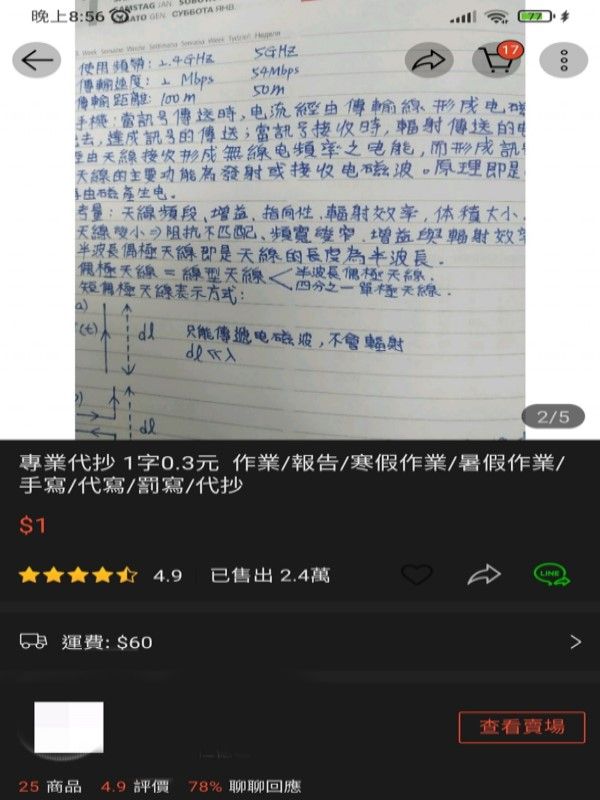 晚上8:56
77
SAMSTAG JAN.
GEN. СУББОТА ЯНВ.
17
使用頻帶：2.4GHz 5GHz
傳輸速度：2 Mbps 54Mbps
傳輸距離：100m 50m
手機：當訊号傳送時，电流經由傳輸線形成电磁
去，達成訊号的傳送；當訊号接收時，輻射傳送的电
經由天線接收形成無線电頻率之电能，而形成訊
天線的主要功能為發射或接收电磁波。原理即是
再由磁產生电。
考量：天線頻段、增益、指向性、輻射效率，体積大小、
天線變小⇒阻抗不匹配、頻寬變窄、增益與輻射效率
半波長偶極天線即是天線的長度為半波長。
偶極天線＝線型天線＜半波長偶極天線．
四分之一單極天線．
短偶極天線表示方式：
a)
(t) dl 只能傳遞电磁波，不會輻射
dl≪λ
dl
2/5
專業代抄 1字0.3元 作業/報告/寒假作業/暑假作業/
手寫/代寫/罰寫/代抄
$1
4.9 已售出 2.4萬
LINE
運費: $60
查看賣場
25 商品 4.9 評價 78% 聊聊回應